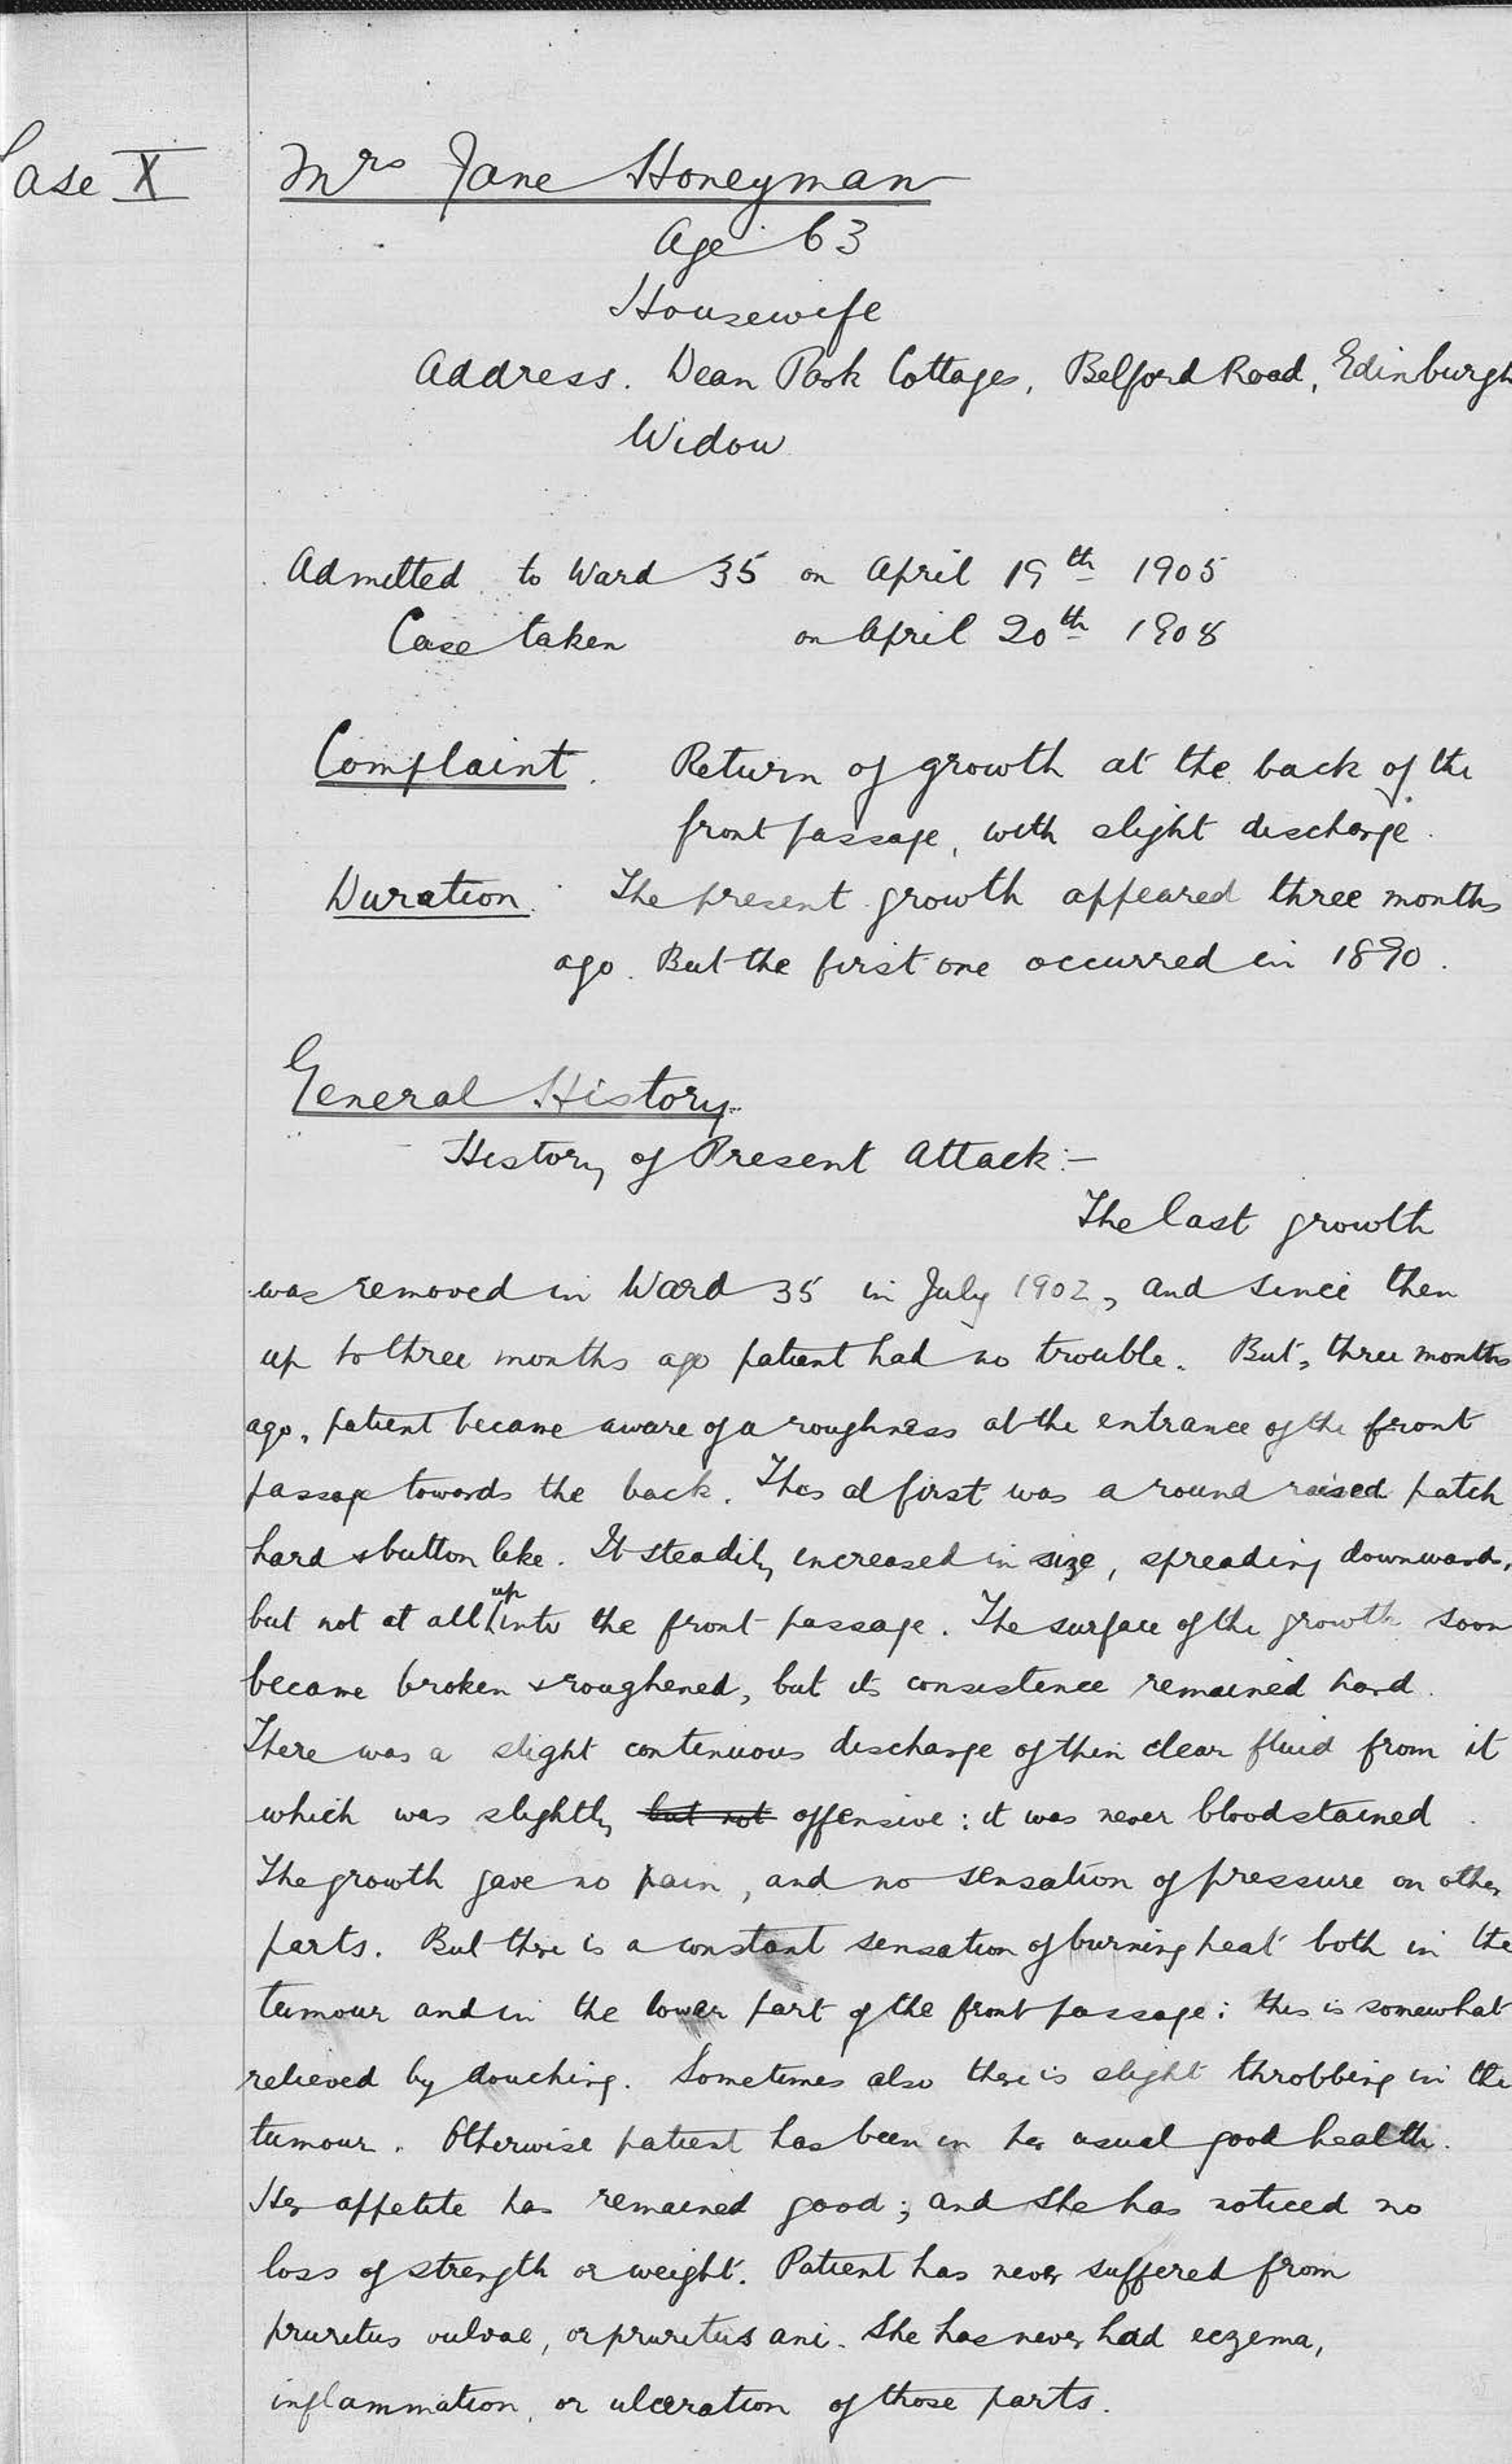 Case X
Mrs Jane Honeyman
Age 63
Housewife
Address. Dean Park Cottages, Belford Road, Edinburgh
Widow
Admitted to Ward 35 on April 19th 1905
Case taken on April 20th 1908
Complaint. Return of growth at the back of the
front passage, with slight discharge.
Duration. The present growth appeared three months
ago. But the first one occurred in 1890.
General History.
History of Present Attack:-
The last growth
was removed in Ward 35 in July 1902, and since then
up to three months ago patient had no trouble. But, three months
ago, patient became aware of a roughness at the entrance of the front
passage towards the back. This at first was a round raised patch
hard & button like. It steadily increased in size, spreading downwards,
but not at all up into the front passage. The surface of the growth soon
became broken & roughened, but its consistence remained hard.
There was a slight continuous discharge of thin clear fluid from it
which was slightly but not offensive: it was never bloodstained.
The growth gave no pain, and no sensation of pressure on other
parts. But there is a constant sensation of burning heat both in the
tumour and in the lower part of the front passage: this is somewhat
relieved by douching. Sometimes also there is slight throbbing in the
tumour. Otherwise patient has been in her usual good health.
Her appetite has remained good; and she has noticed no
loss of strength or weight. Patient has never suffered from
pruritus vulvae, or pruritus ani. She has never had eczema,
inflammation, or ulceration of those parts.